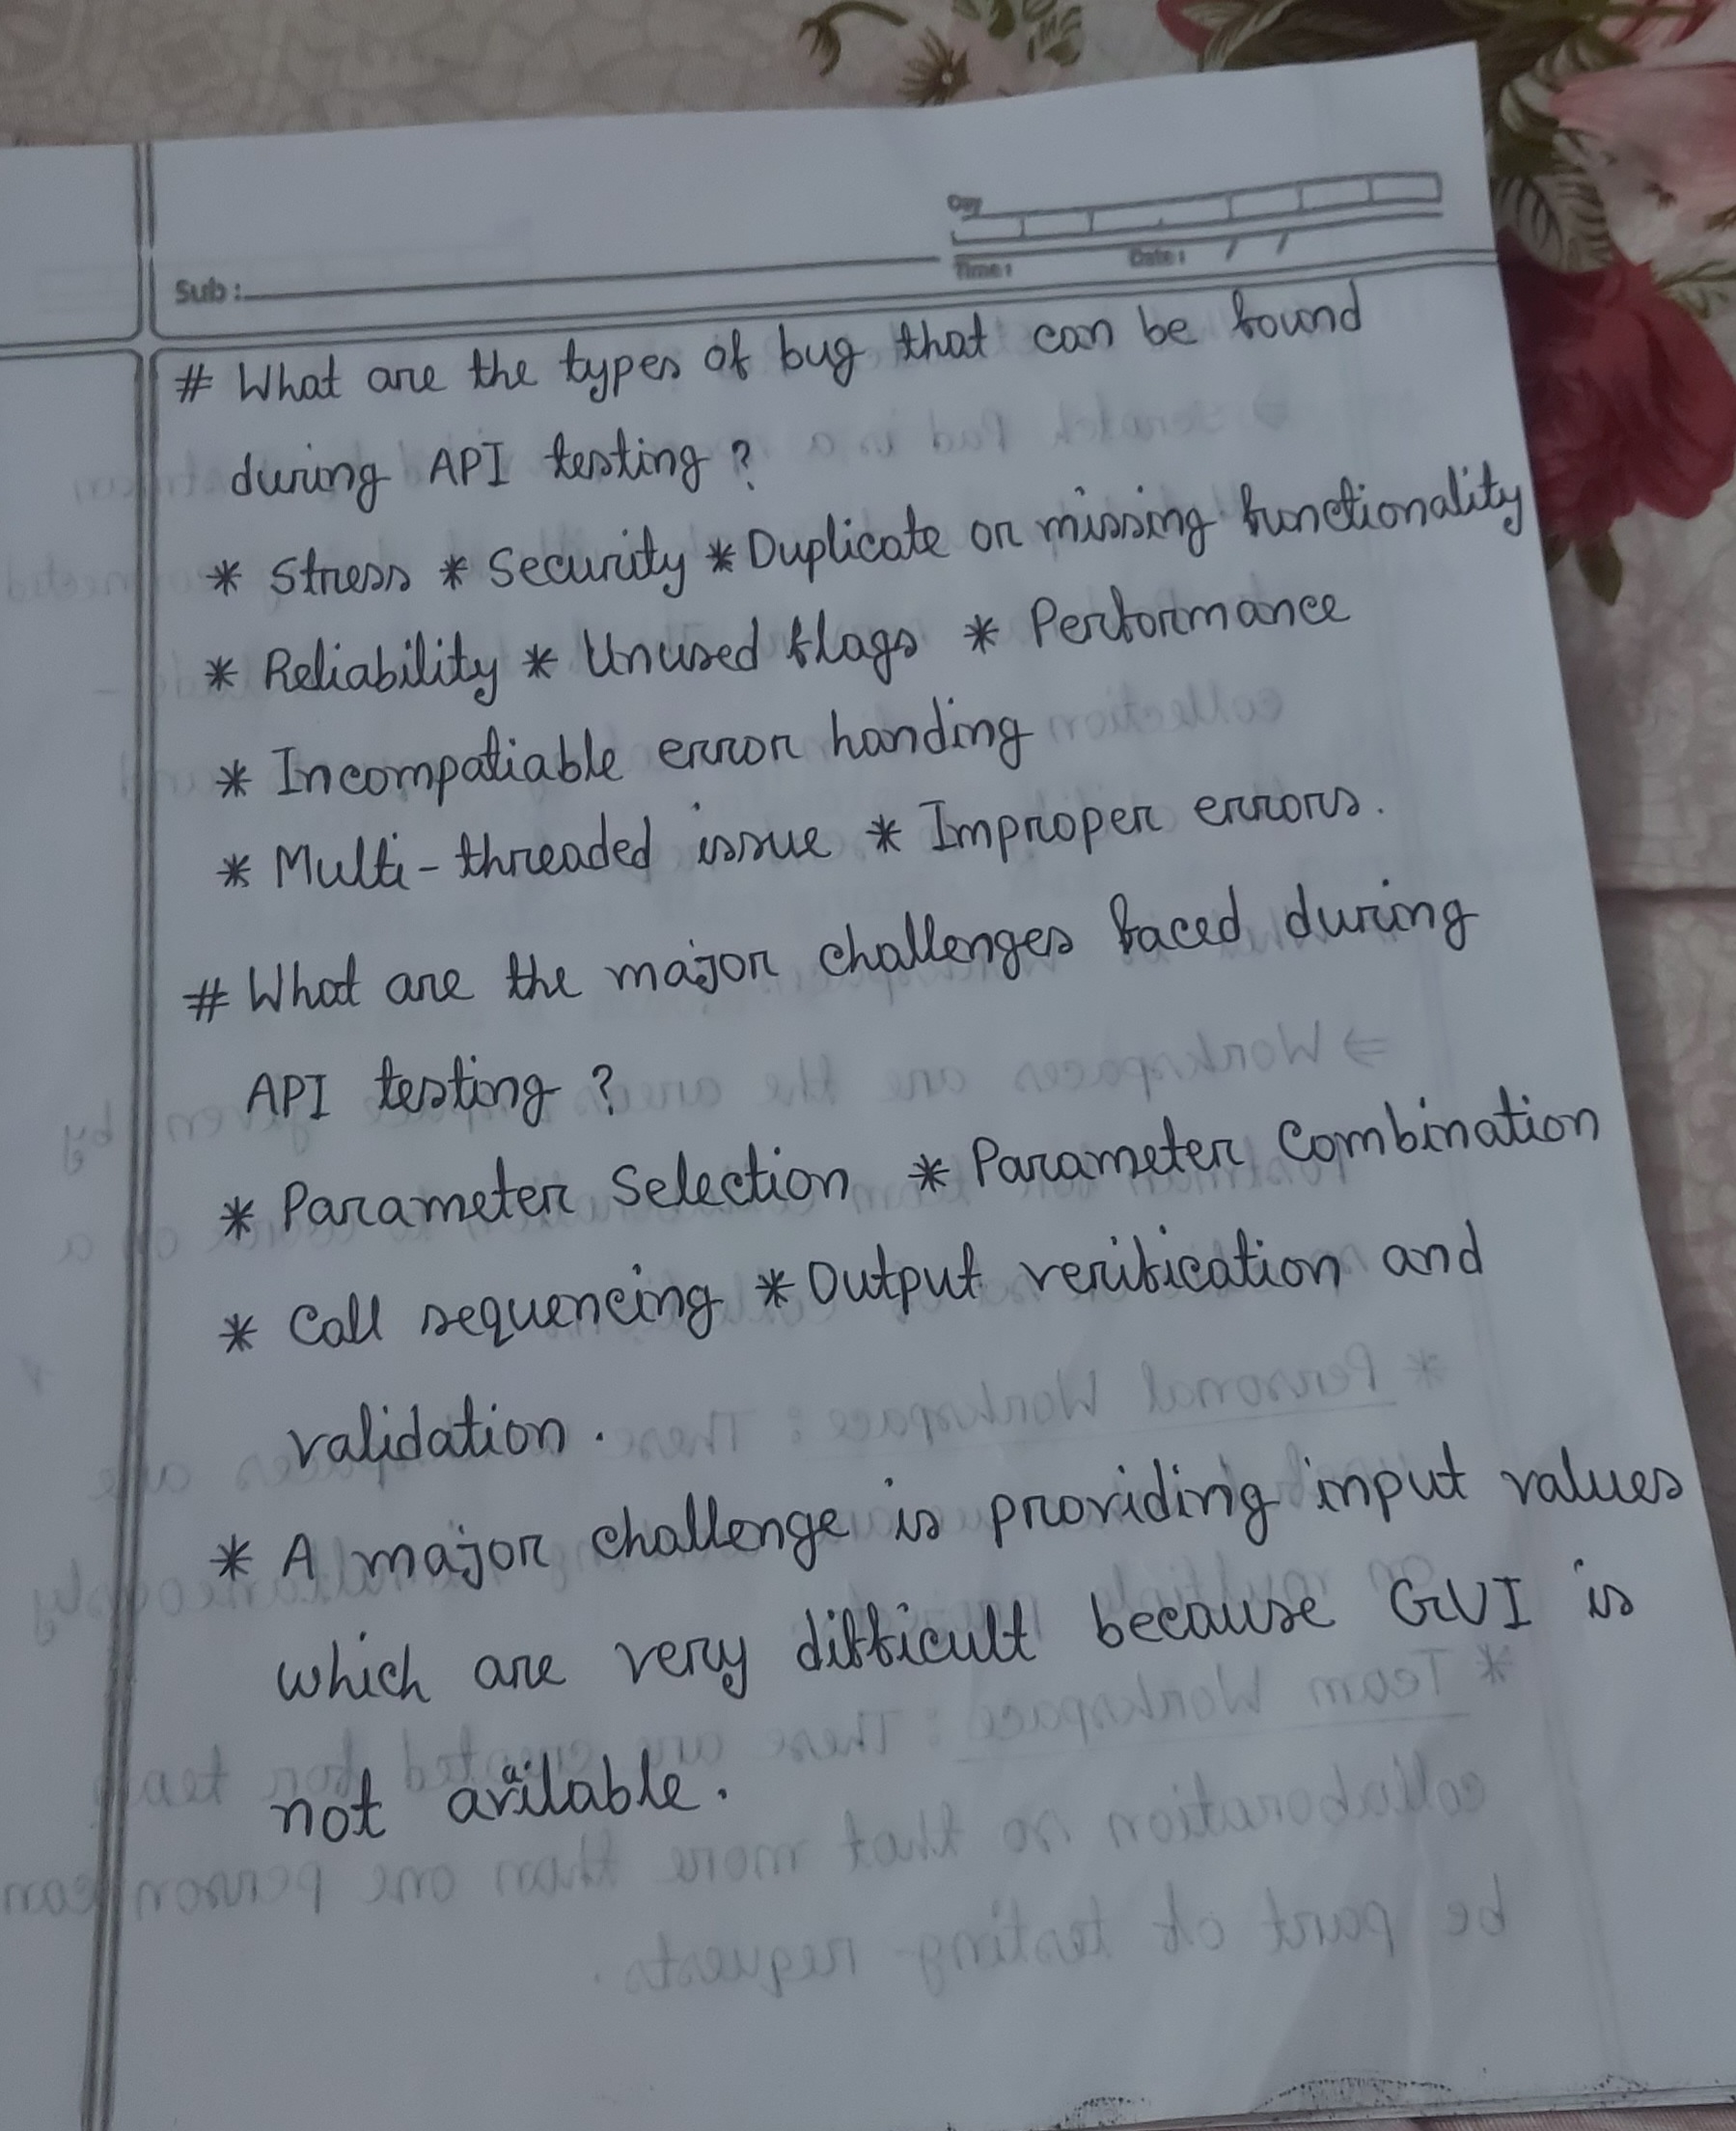 Day
Time: Date: / /
Sub:
# What are the types of bug that can be found
during API testing?
* Stress * Security * Duplicate or missing functionality
* Reliability * Unused flags * Performance
* Incompatiable error handing
* Multi-threaded issue * Improper errors.
# What are the major challenges faced during
API testing?
* Parameter Selection * Parameter Combination
* Call sequencing * Output verification and
validation.
* A major challenge is providing input values
which are very difficult because GUI is
not available.